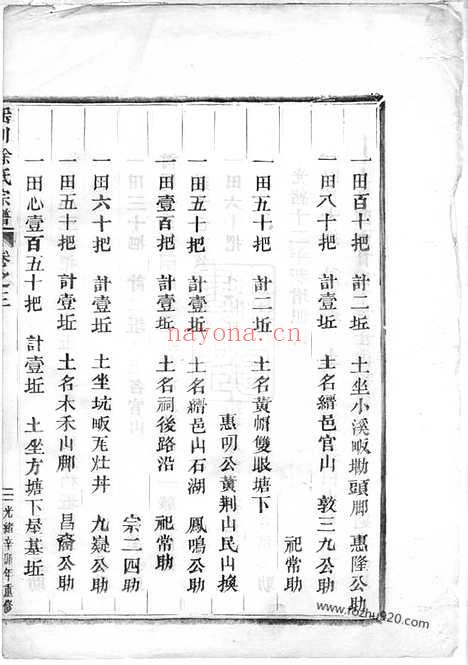 一田百十把 計二坵 土坐小溪畈塝頭脚 惠隆公助
一田八十把 計壹坵 土名縉邑官山 敦三九公助
祀常助
一田五十把 計二坵 土名黃帽雙眼塘下
惠明公黃荆山民山換
一田五十把 計壹坵 土名縉邑山石湖 鳳鳴公助
一田壹百把 計壹坵 土名祠後路沿 祀常助
宗二四助
一田六十把 計壹坵 土坐坑畈瓦灶丼 九嶷公助
一田五十把 計壹坵 土名木禾山脚 昌裔公助
一田心壹百五十把 計壹坵 土坐方塘下屋基坵
川徐氏宗譜 卷之三
光緒辛卯年重修
nayona.cn
www.fozhu920.com